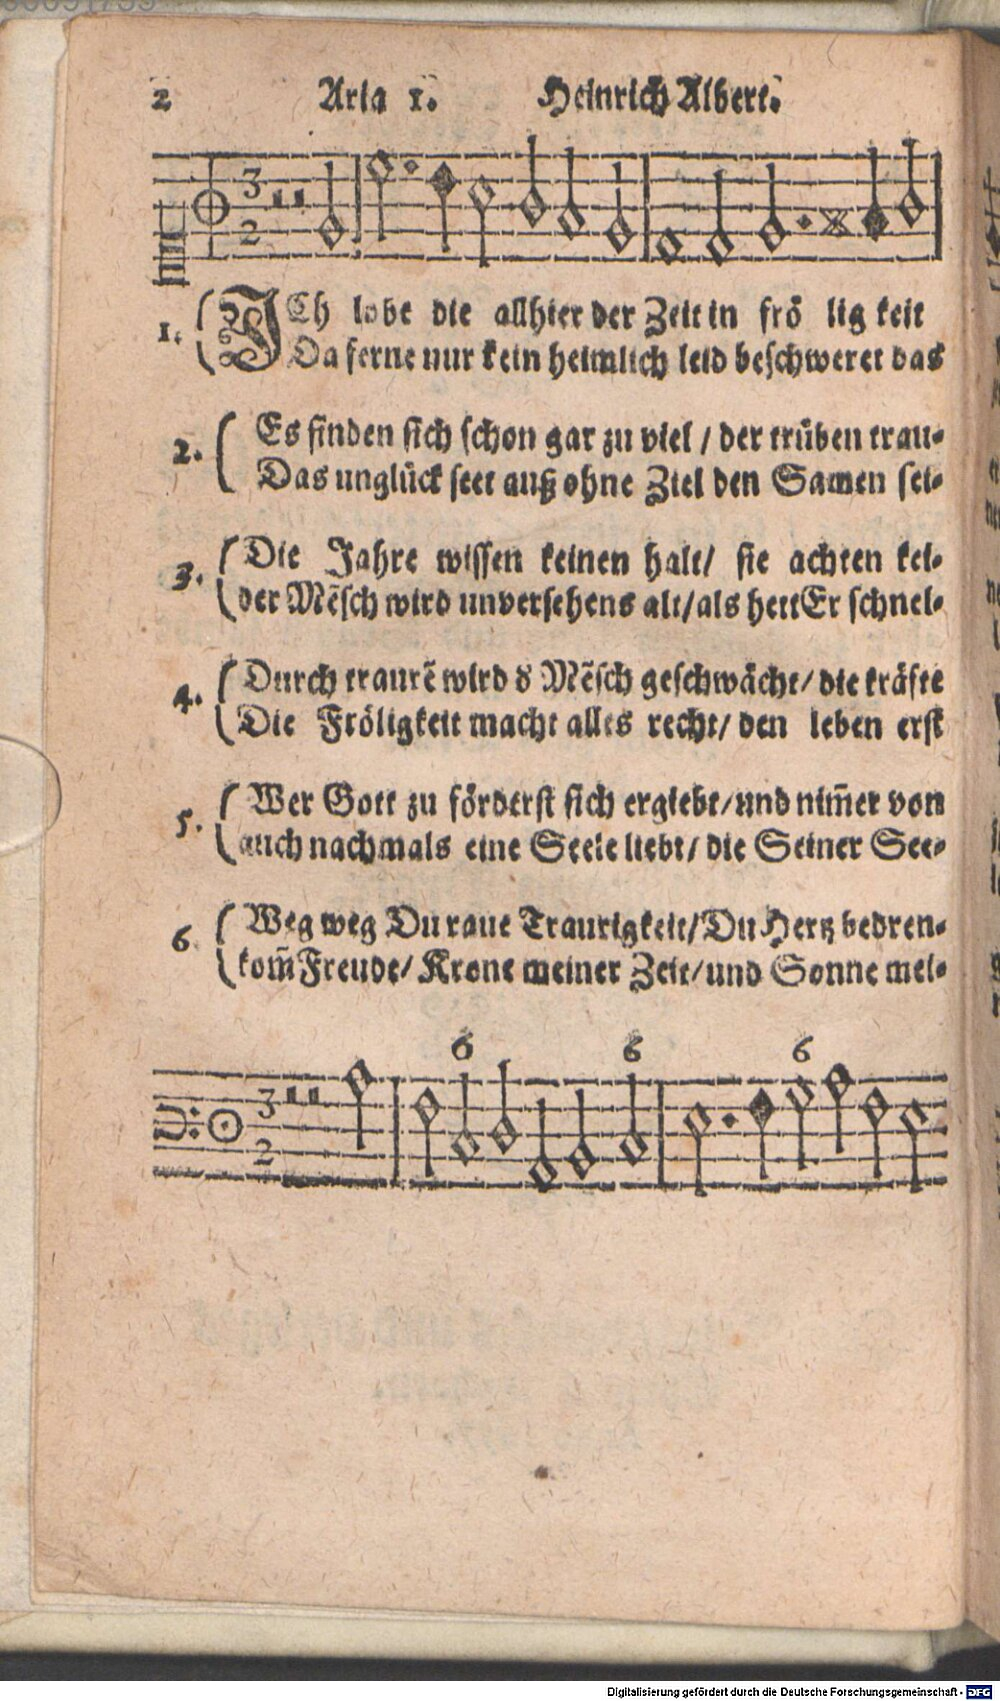 2 Aria 1. Heinrich Albert.
3
2
1. ICh lobe die allhier der Zeit in frö lig keit
Da ferne nur kein heimlich leid beschweret das
2. Es finden sich schon gar zu viel / der trüben trau-
Das unglück seet auß ohne Ziel den Samen sei-
3. Die Jahre wissen keinen halt/ sie achten kei-
der Mẽsch wird unversehens alt/als hett Er schnel-
4. Durch traurẽ wird d Mẽsch geschwächt/ die kräfte
Die Fröligkeit macht alles recht/ den leben erst
5. Wer Gott zu förderst sich ergiebt/und nim̃et von
auch nachmals eine Seele liebt/ die Seiner See-
6 Weg weg Du raue Traurigkeit/Du Hertz bedren-
kom̃ Freude/ Krone meiner Zeit/und Sonne mei-
6 6 6
3
2
Digitalisierung gefördert durch die Deutsche Forschungsgemeinschaft - DFG